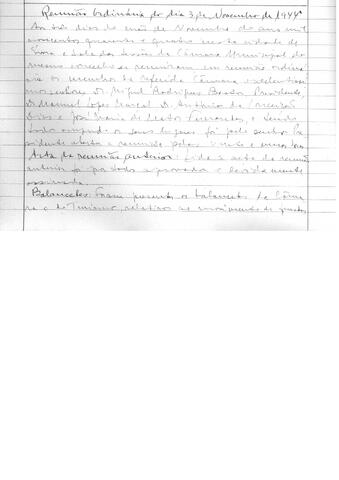 Reunião Ordinária do dia 3 de Novembro de 1944
Aos três dias do mês de Novembro do ano mil
novecentos quarenta e quatro nesta cidade de
e sala das sessões da Câmara Municipal do
mesmo concelho se reuniram em reunião ordiná
ria os membros da referida Câmara excelentíssi
mos senhores Dr. Miguel Rodrigues Bastos Presidente,
Manuel Lopes Dr. António da Conceição
Dias e José Maria de Fernandes, e sendo
todos ocupado os seus lugares foi pelo senhor Pre
sidente aberta a reunião pelas vinte e uma horas
Acta da reunião anterior: Lida a acta da reunião
anterior foi por todos aprovada e devidamente
assinada.
Balancetes: Foram presentes os balancetes da Câma
ra e do Turismo, relativos ao movimento de